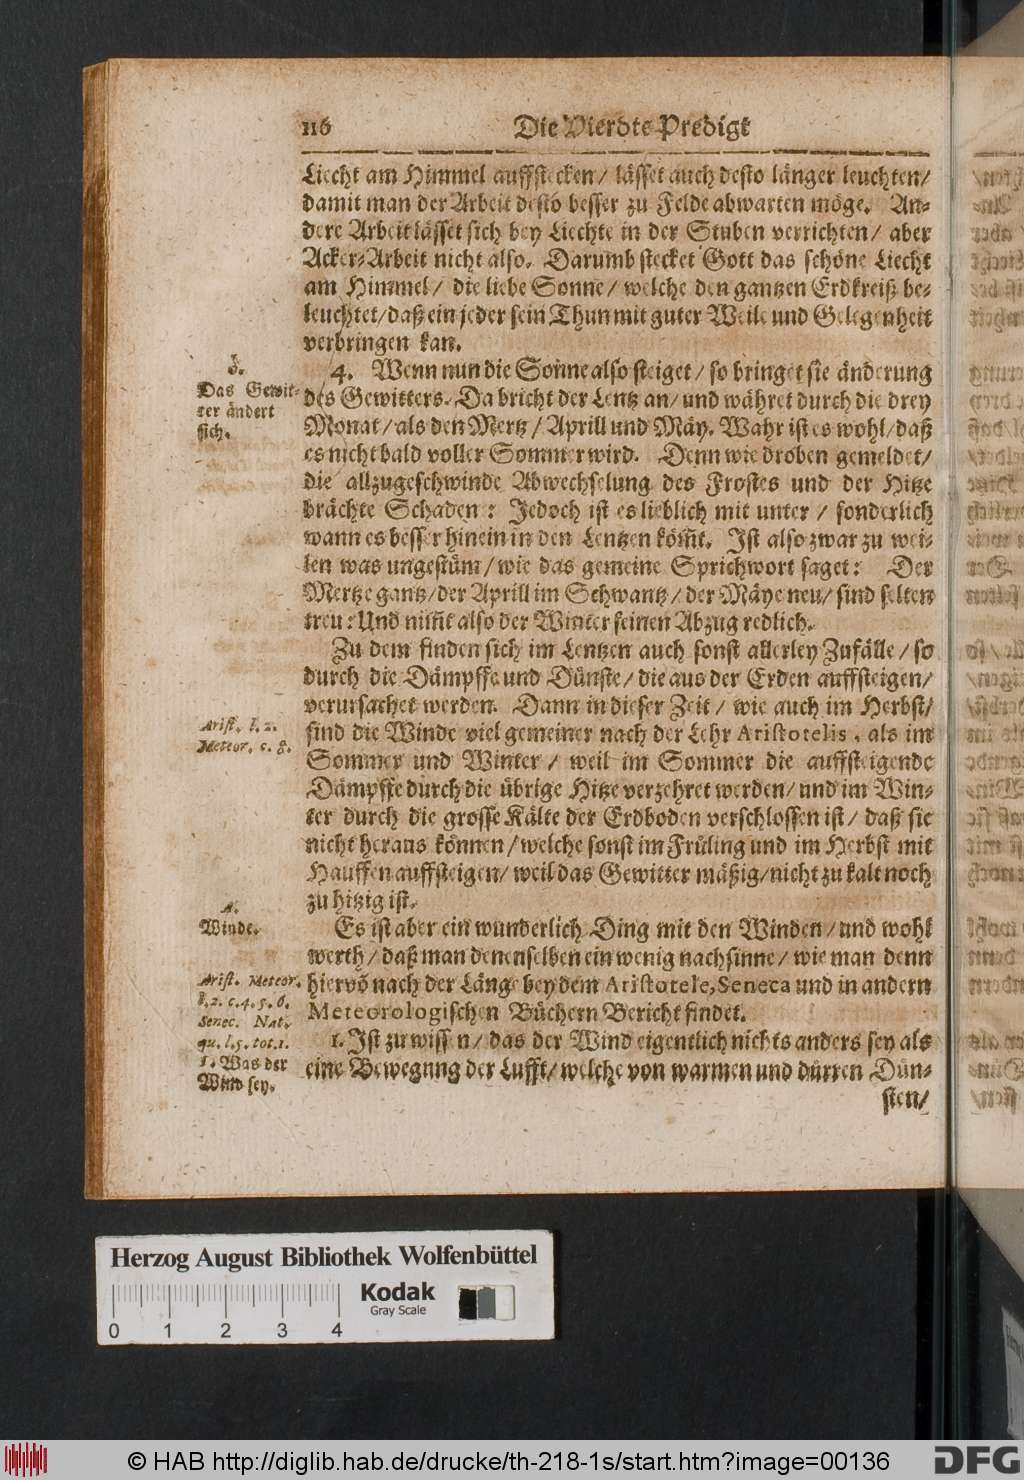 116 Die Vierdte Predigt
Liecht am Himmel auffstecken / lässet auch desto länger leuchten/
damit man der Arbeit desto besser zu Felde abwarten möge. An-
dere Arbeit lässet sich bey Liechte in der Stuben verrichten / aber
Acker-Arbeit nicht also. Darumb stecket Gott das schöne Liecht
am Himmel / die liebe Sonne / welche den gantzen Erdkreiß be-
leuchtet/daß ein jeder sein Thun mit guter Weile und Gelegenheit
verbringen kan.
3.
Das Gewit-
ter ändert
sich.
4. Wenn nun die Sonne also steiget / so bringet sie änderung
des Gewitters. Da bricht der Lentz an/ und währet durch die drey
Monat / als den Mertz / Aprill und Mäy. Wahr ist es wohl/daß
es nicht bald voller Sommer wird. Denn wie droben gemeldet/
die allzugeschwinde Abwechselung des Frostes und der Hitze
brächte Schaden : Jedoch ist es lieblich mit unter / sonderlich
wann es besser hinein in den Lentzen köm̃t. Ist also zwar zu wei-
len was ungestüm/ wie das gemeine Sprichwort saget: Der
Mertze gantz/der Aprill im Schwantz / der Mäye neu/ sind selten
treu : Und nim̃t also der Winter seinen Abzug redlich.
Zu dem finden sich im Lentzen auch sonst allerley Zufälle / so
durch die Dämpffe und Dünste / die aus der Erden auffsteigen/
verursachet werden. Dann in dieser Zeit / wie auch im Herbst/
Arist. l. 2.
Meteor. c. 8.
sind die Winde viel gemeiner nach der Lehr Aristotelis, als im
Sommer und Winter / weil im Sommer die auffsteigende
Dämpffe durch die übrige Hitze verzehret werden/ und im Win-
ter durch die grosse Kälte der Erdboden verschlossen ist / daß sie
nicht heraus können / welche sonst im Früling und im Herbst mit
Hauffen auffsteigen/ weil das Gewitter mäßig/nicht zu kalt noch
zu hitzig ist.
4.
Winde.
Es ist aber ein wunderlich Ding mit den Winden / und wohl
werth / daß man denenselben ein wenig nachsinne / wie man denn
Arist. Meteor.
l. 2. c. 4. 5. 6.
Senec. Nat.
qu. l. 5. tot. 1.
hiervõ nach der Länge bey dem Aristotele, Seneca und in andern
Meteorologischen Büchern Bericht findet.
1. Was der
Wind sey.
1. Ist zu wissen / das der Wind eigentlich nichts anders sey als
eine Bewegung der Lufft / welche von warmen und dürren Dün-
sten/
Herzog August Bibliothek Wolfenbüttel
Kodak
Gray Scale
0 1 2 3 4
© HAB http://diglib.hab.de/drucke/th-218-1s/start.htm?image=00136
DFG